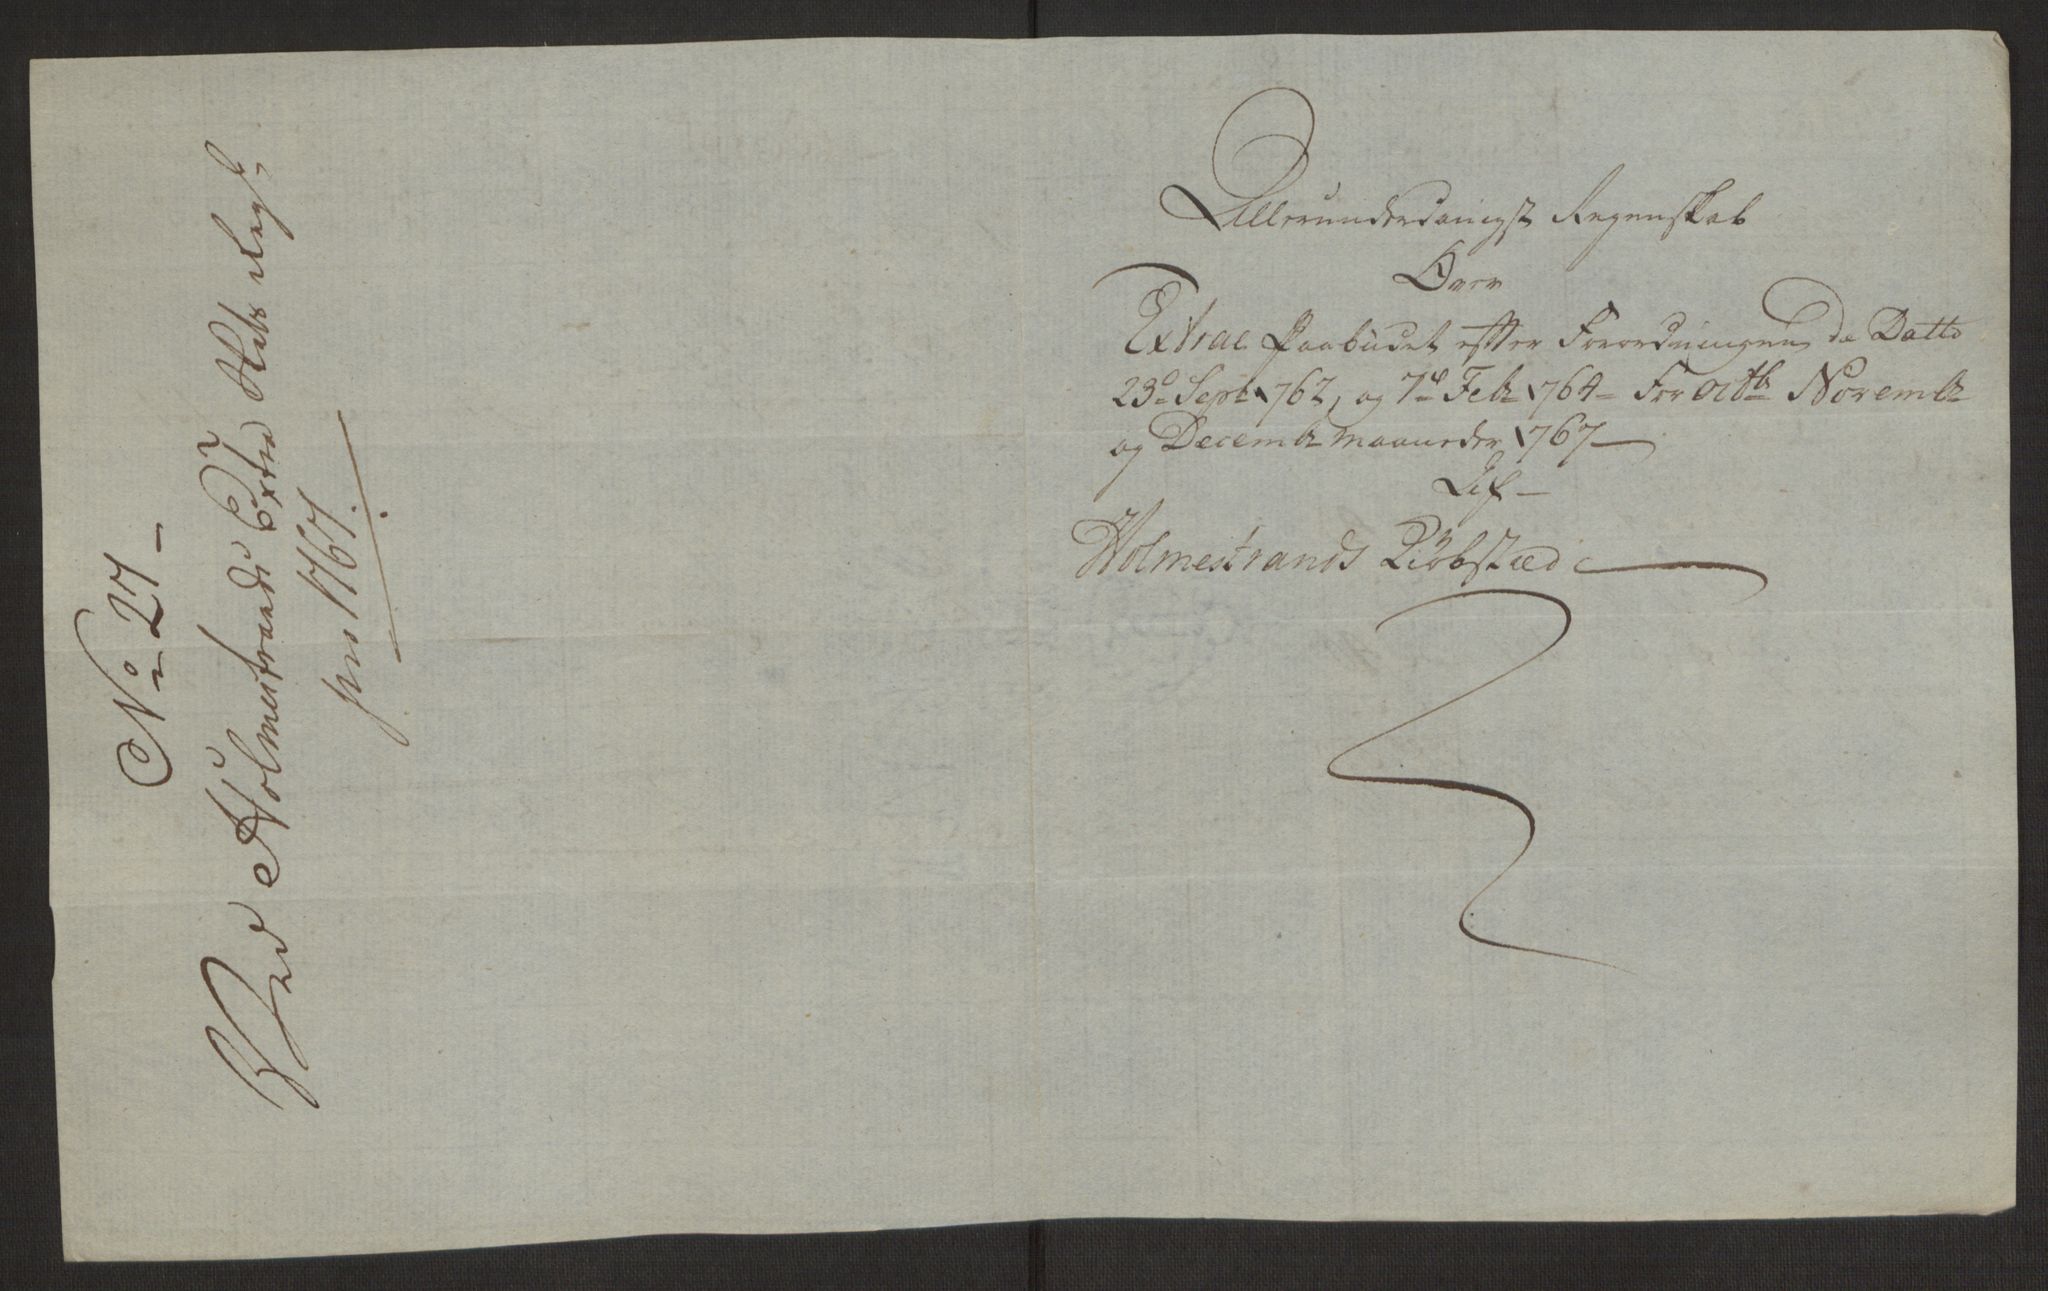 No 27
Ved Holmestrands Extra Skats Regsk:
pro 1767.
Allerunderdanigst Regenskab
Over
Extrae Paabudet efter Forordningen de Datto
23d Sept 1762, og 7d Febr 1764 For Octbr Novembr
og Decembr Maaneder 1767
Af
Holmestrands Kiöbstæd